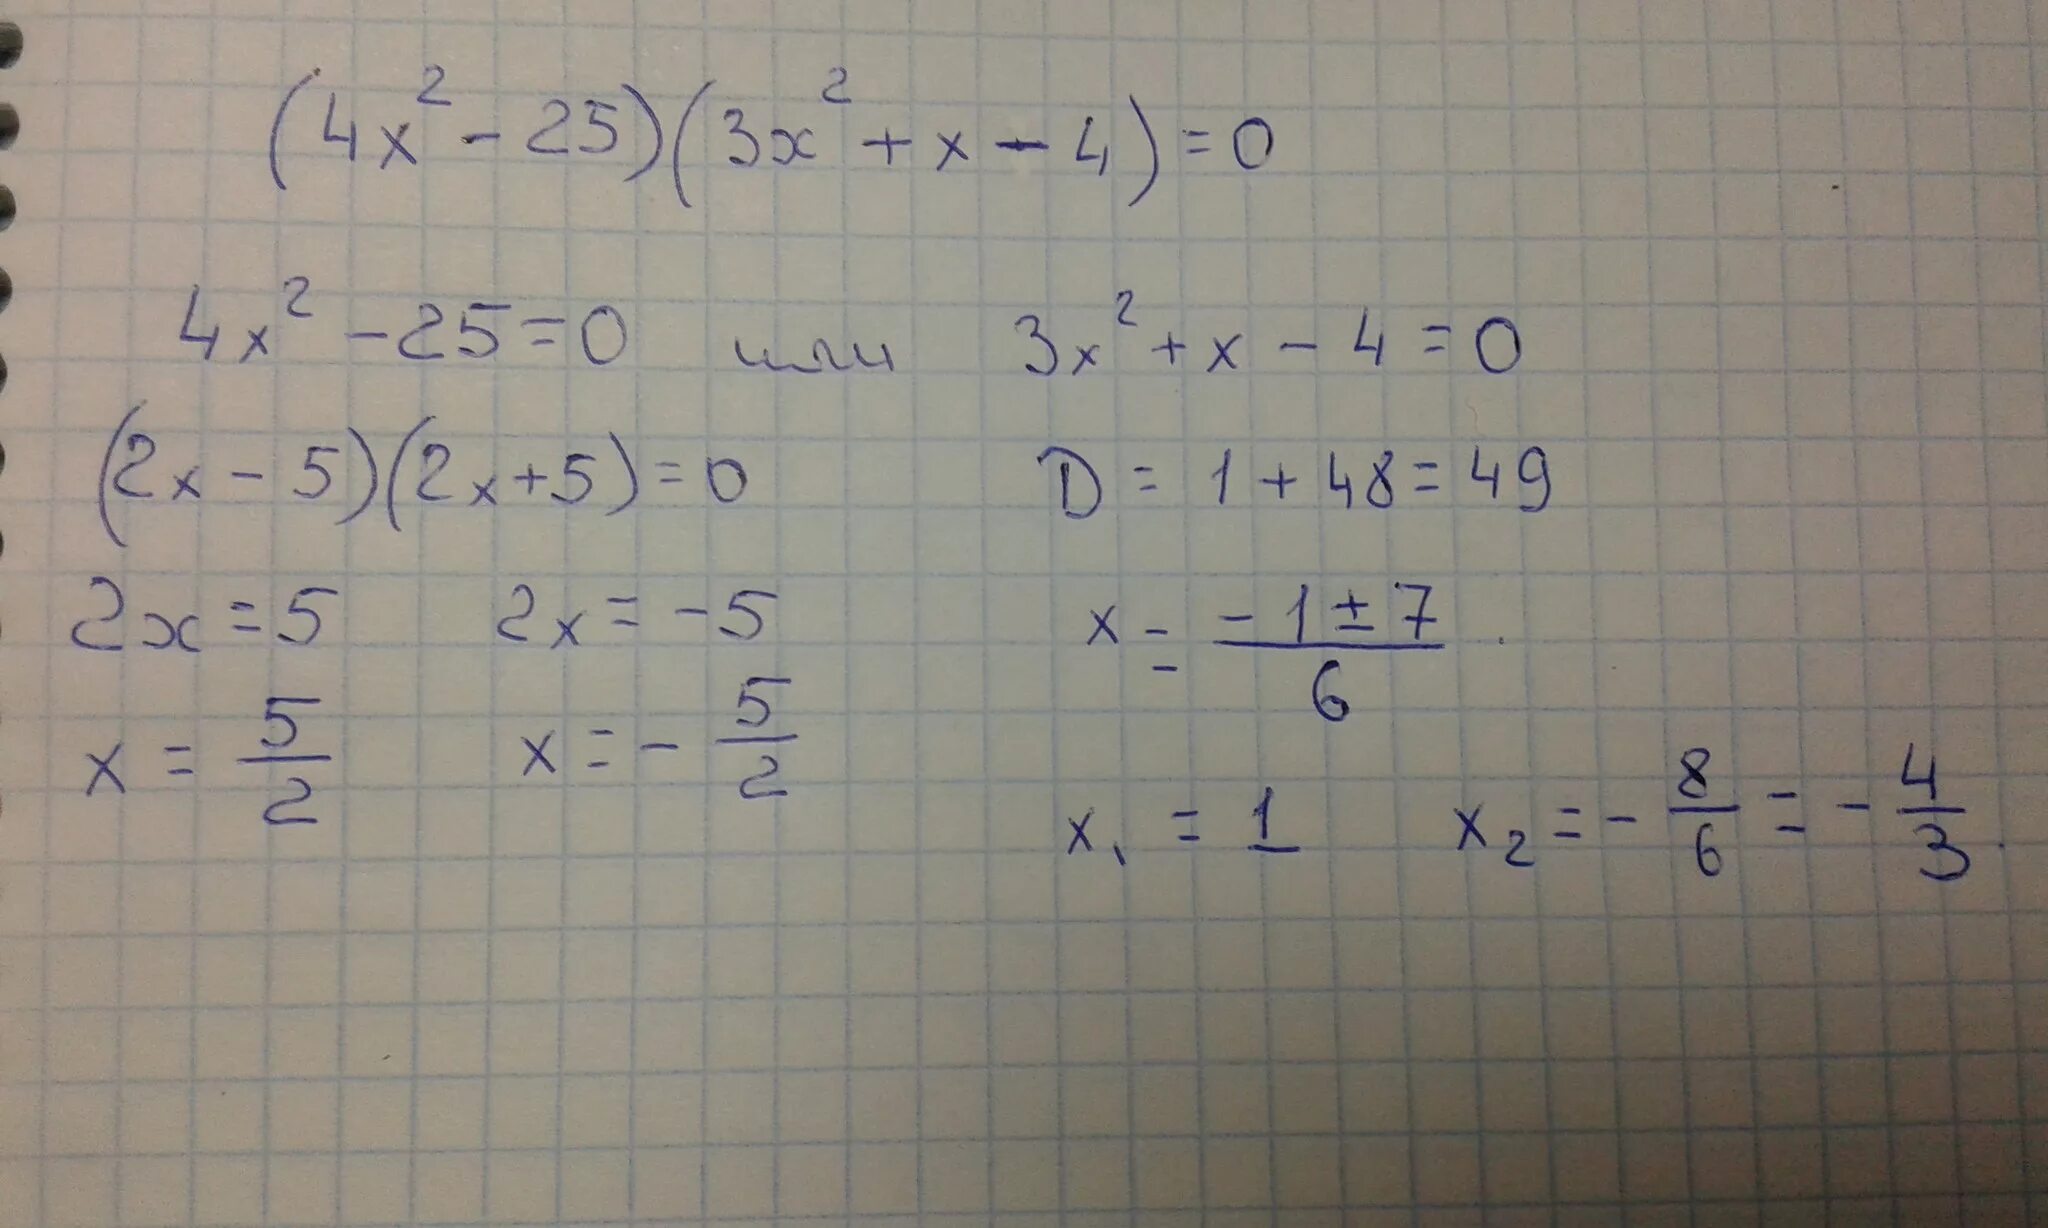 (4x² - 25)(3x² + x - 4) = 0
4x² - 25 = 0 или 3x² + x - 4 = 0
(2x - 5)(2x + 5) = 0
D = 1 + 48 = 49
2x = 5
2x = -5
x = (-1 ± 7)/6
x = 5/2
x = - 5/2
x₁ = 1
x₂ = - 8/6 = - 4/3